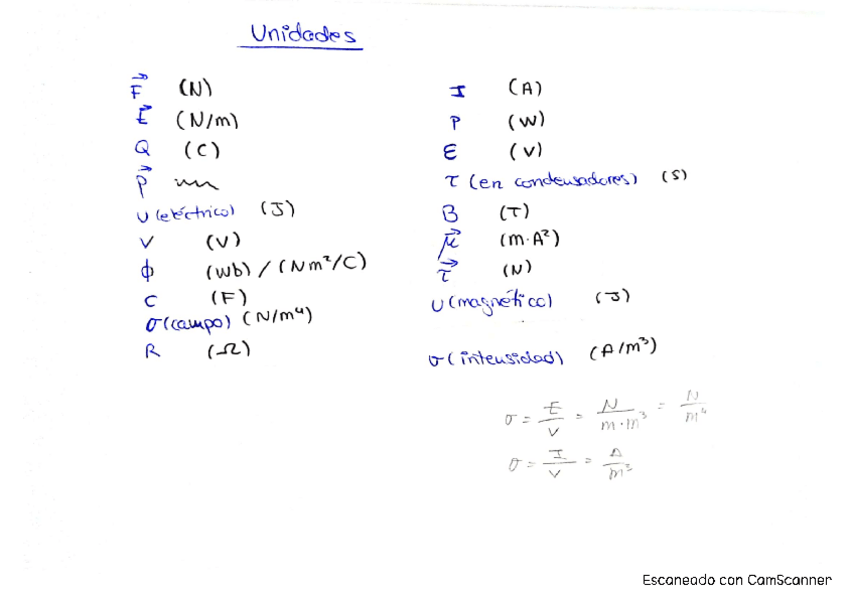 Unidades
F⃗ (N)
E⃗ (N/m)
Q (C)
p⃗
U (eléctrico) (J)
V (V)
ϕ (Wb) / (Nm²/C)
C (F)
σ (campo) (N/m⁴)
R (Ω)
I (A)
P (W)
ε (V)
τ (en condensadores) (s)
B (T)
μ⃗ (m·A²)
τ⃗ (N)
U (magnético) (J)
σ (intensidad) (A/m³)
σ = E/V = N/m·m³ = N/m⁴
σ = I/V = A/m³
Escaneado con CamScanner